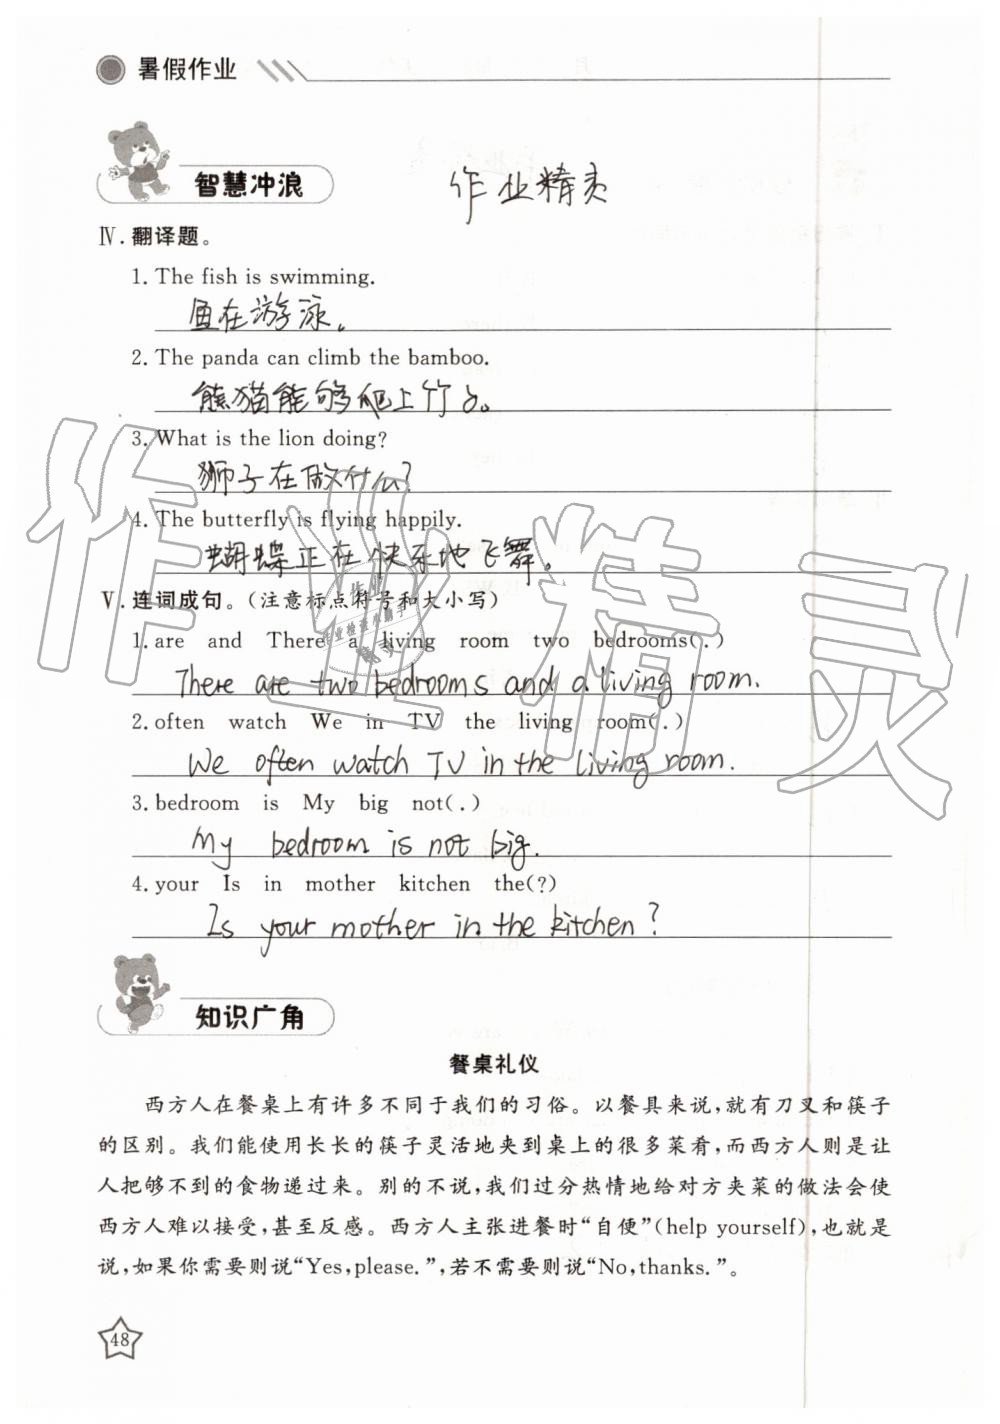 暑假作业
智慧冲浪
作业精灵
Ⅳ.翻译题。
1. The fish is swimming.
鱼在游泳。
2. The panda can climb the bamboo.
熊猫能够爬上竹子。
3. What is the lion doing?
狮子在做什么?
4. The butterfly is flying happily.
蝴蝶正在快乐地飞舞。
Ⅴ.连词成句。(注意标点符号和大小写)
1. are and There a living room two bedrooms(.)
There are two bedrooms and a living room.
2. often watch We in TV the living room(.)
We often watch TV in the living room.
3. bedroom is My big not(.)
My bedroom is not big.
4. your Is in mother kitchen the(?)
Is your mother in the kitchen?
知识广角
餐桌礼仪
西方人在餐桌上有许多不同于我们的习俗。以餐具来说,就有刀叉和筷子
的区别。我们能使用长长的筷子灵活地夹到桌上的很多菜肴,而西方人则是让
人把够不到的食物递过来。别的不说,我们过分热情地给对方夹菜的做法会使
西方人难以接受,甚至反感。西方人主张进餐时“自便”(help yourself),也就是
说,如果你需要则说“Yes,please.”,若不需要则说“No,thanks.”。
48
作业精灵